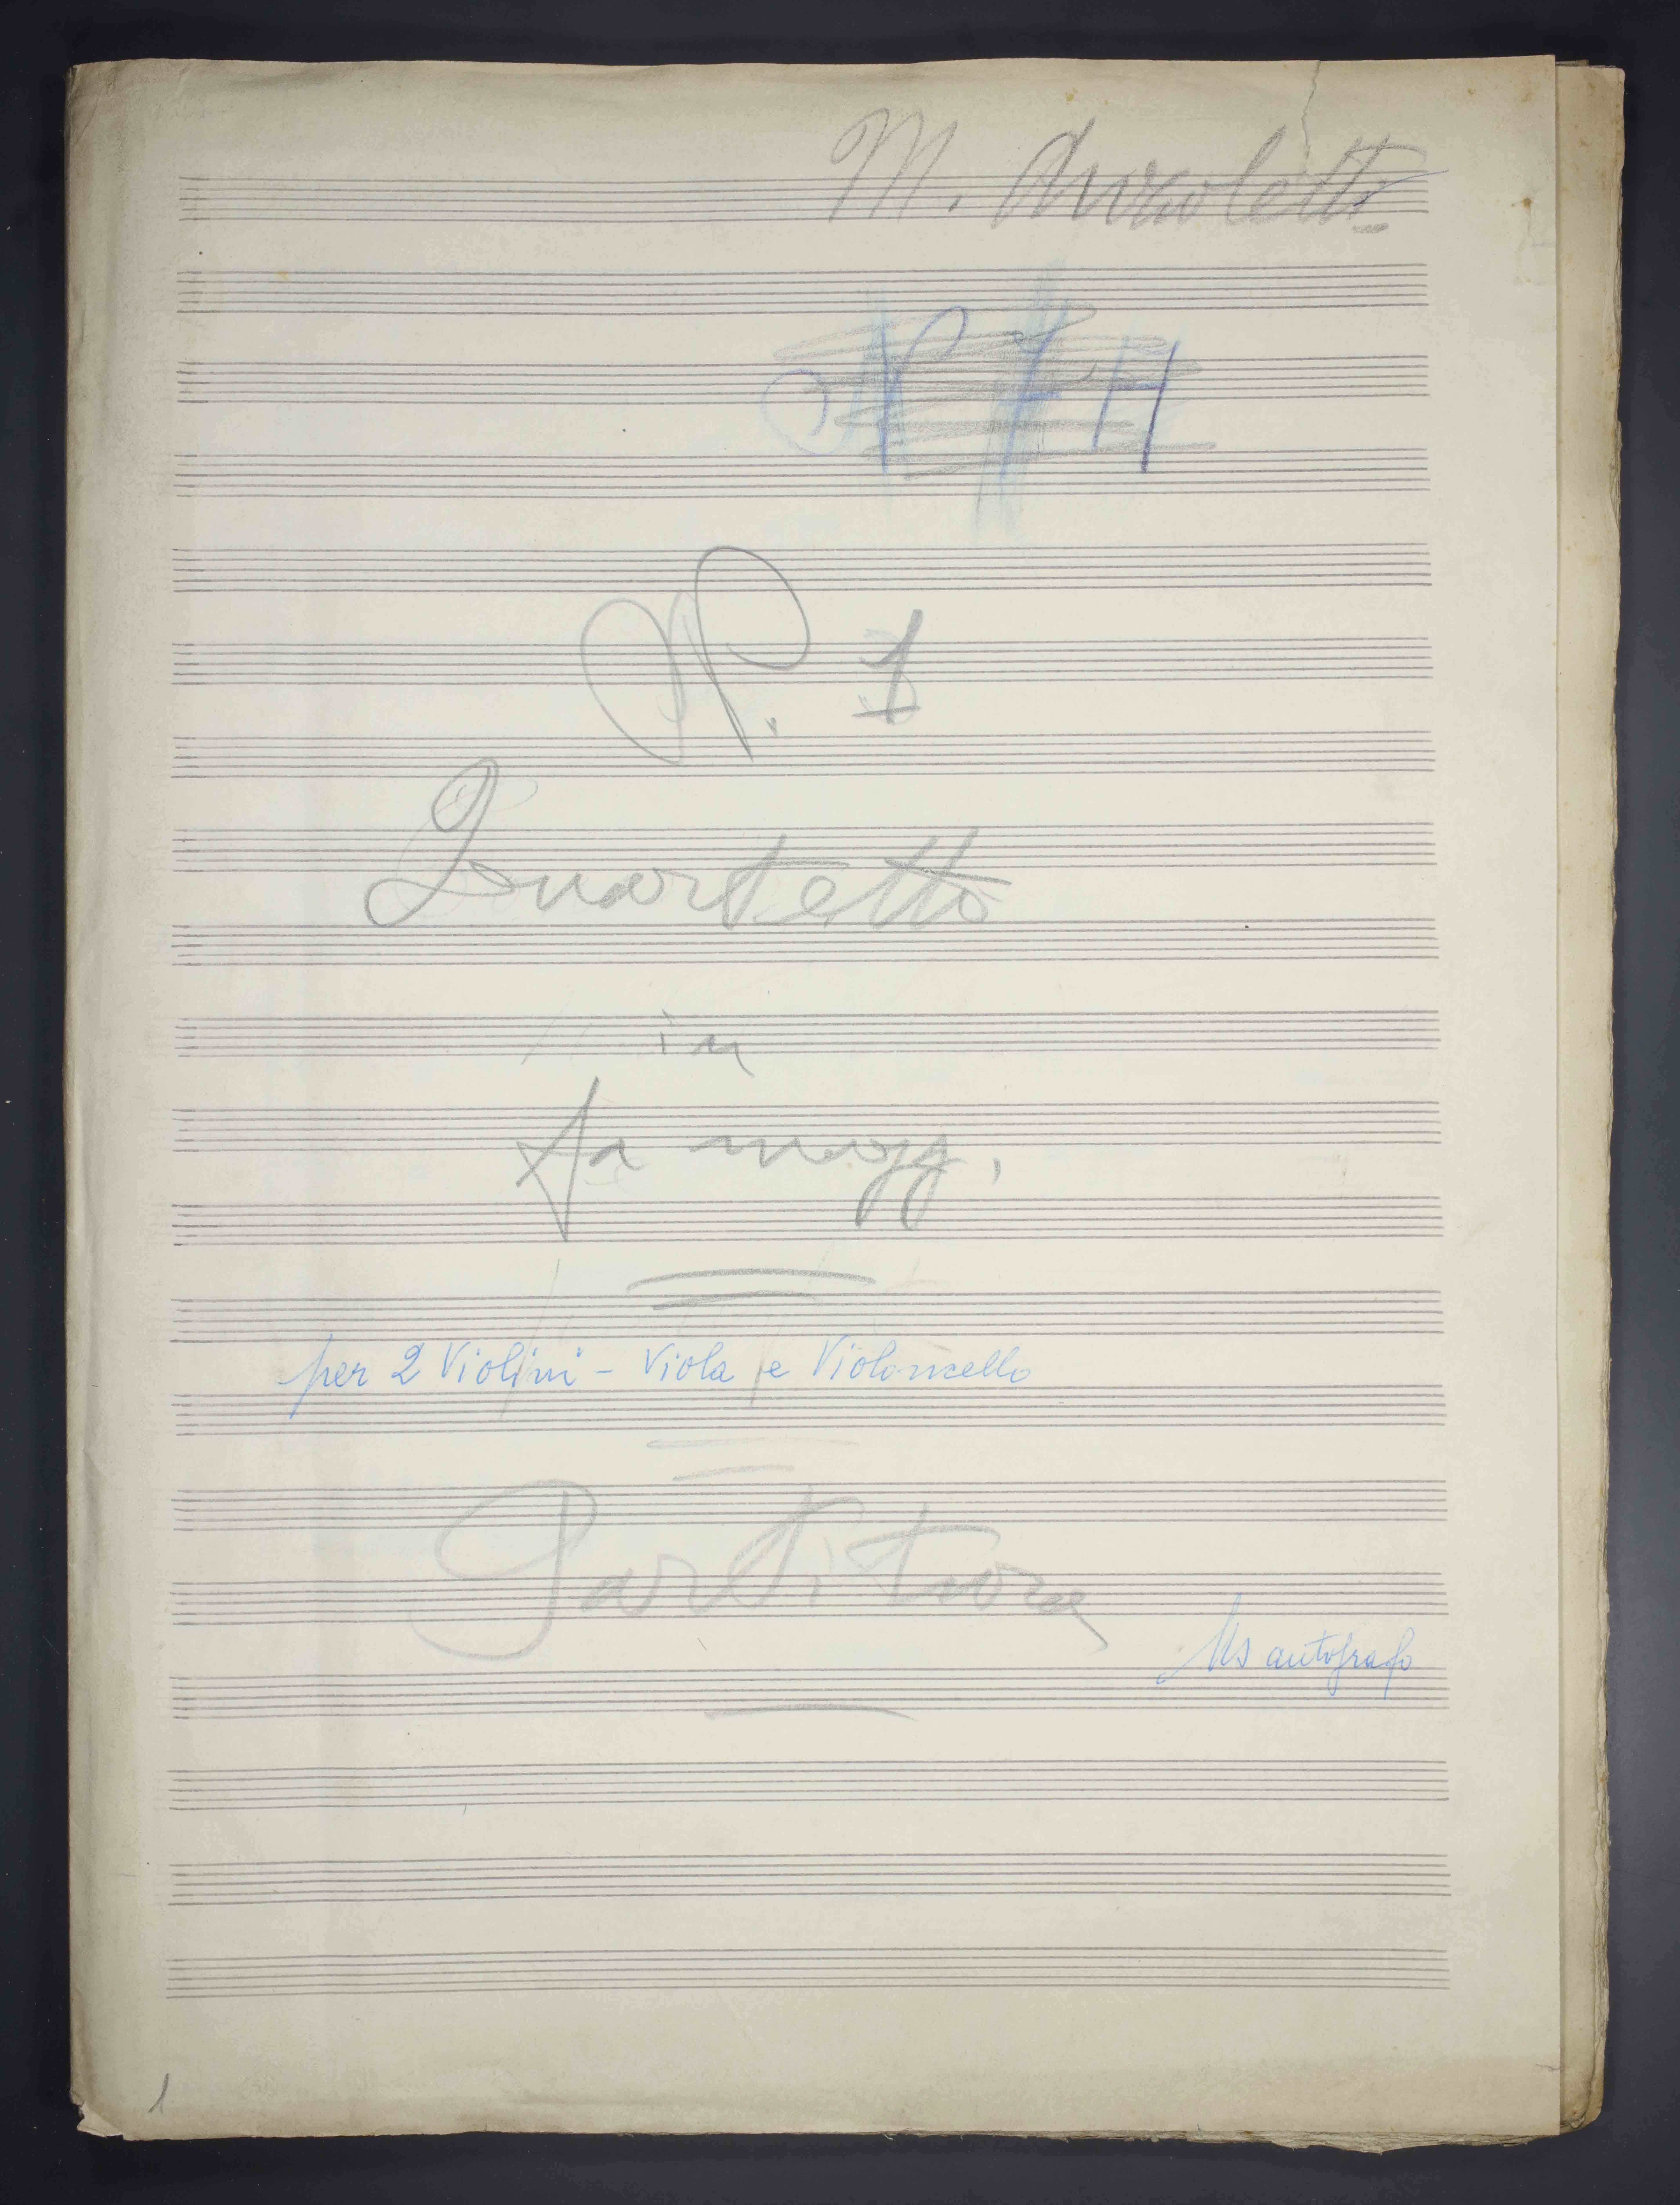 M. Anzoletti
N. 1
Quartetto
in
fa magg.
per 2 Violini - Viola e Violoncello
Partitura
Ms autografo
1